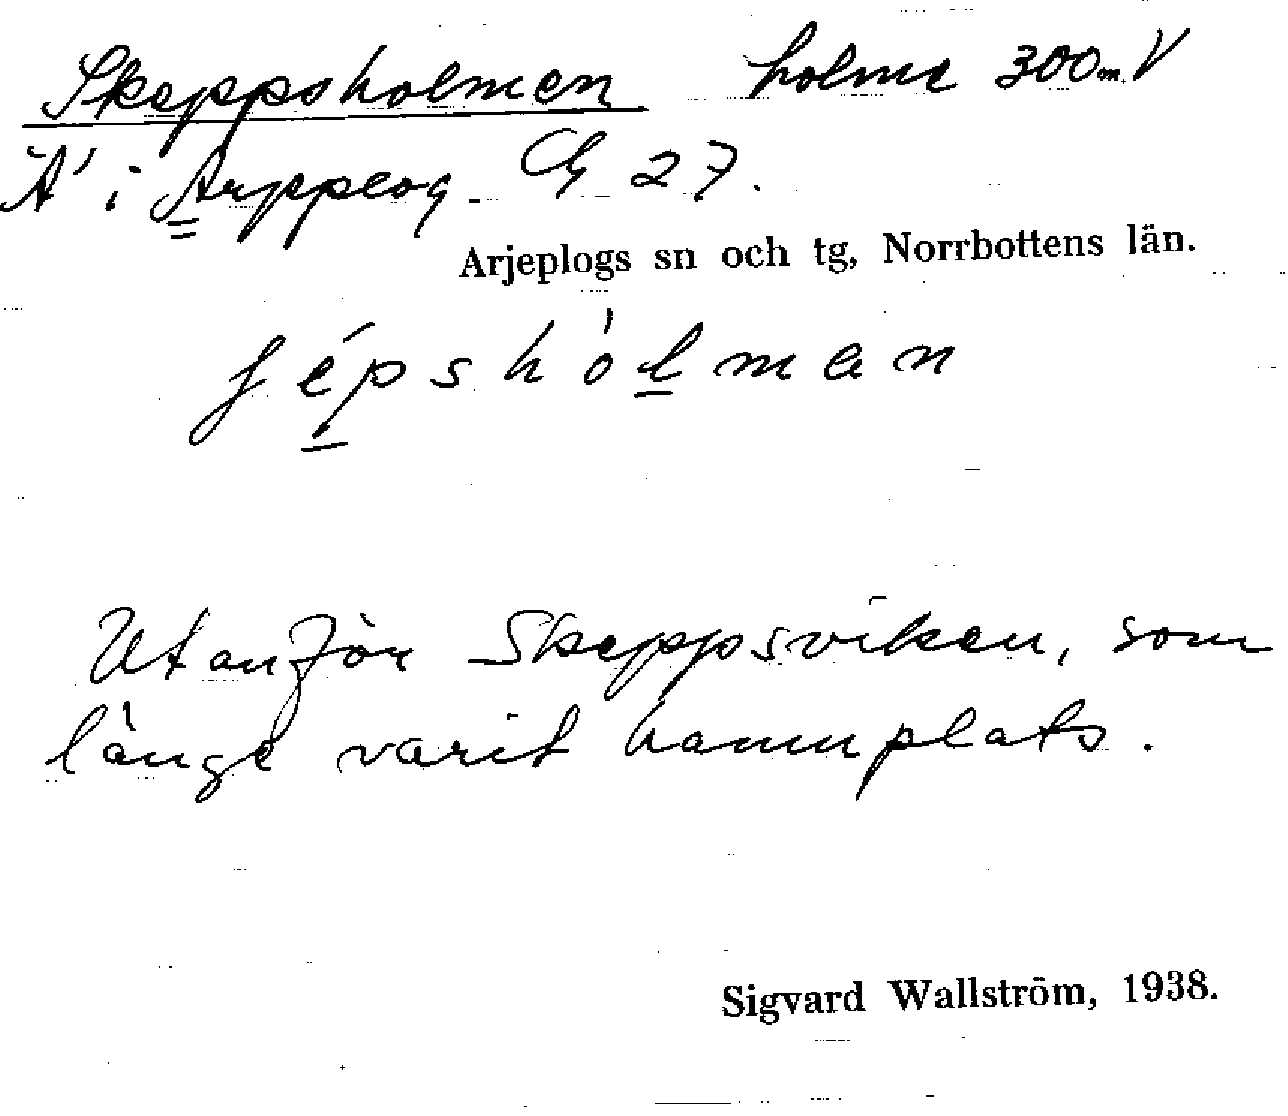 Skeppsholmen holme 300m V
Ä i Arjeplog G 27.
Arjeplogs sn och tg, Norrbottens län.
ʃépshólman
Utanför Skeppsviken, som
länge varit hamnplats.
Sigvard Wallström, 1938.